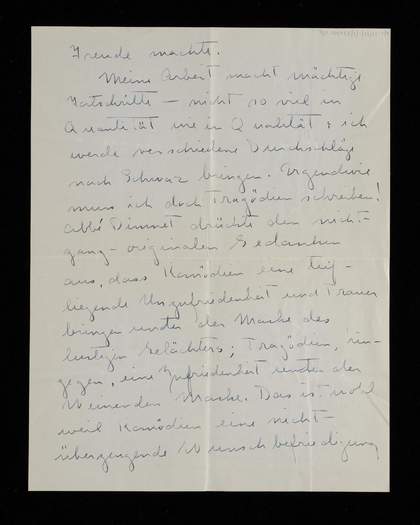 Freude machte.
Meine Arbeit macht mächtige
Fortschritte – nicht so viel in
Quantität wie in Qualität & ich
werde verschiedene Durchschläge
nach Schwaz bringen. Irgendwie
muss ich doch Tragödien schreiben!
Abbé Dimnet drückte den nicht-
ganz-originalen Gedanken
aus, dass Komödien eine tief-
liegende Unzufriedenheit und Trauer
bringen unter der Maske des
lustigen Gelächters; Tragödien, hin-
gegen, eine Zufriedenheit unter der
Weinenden Maske. Das ist wohl
weil Komödien eine nicht-
überzeugende Wunschbefriedigung